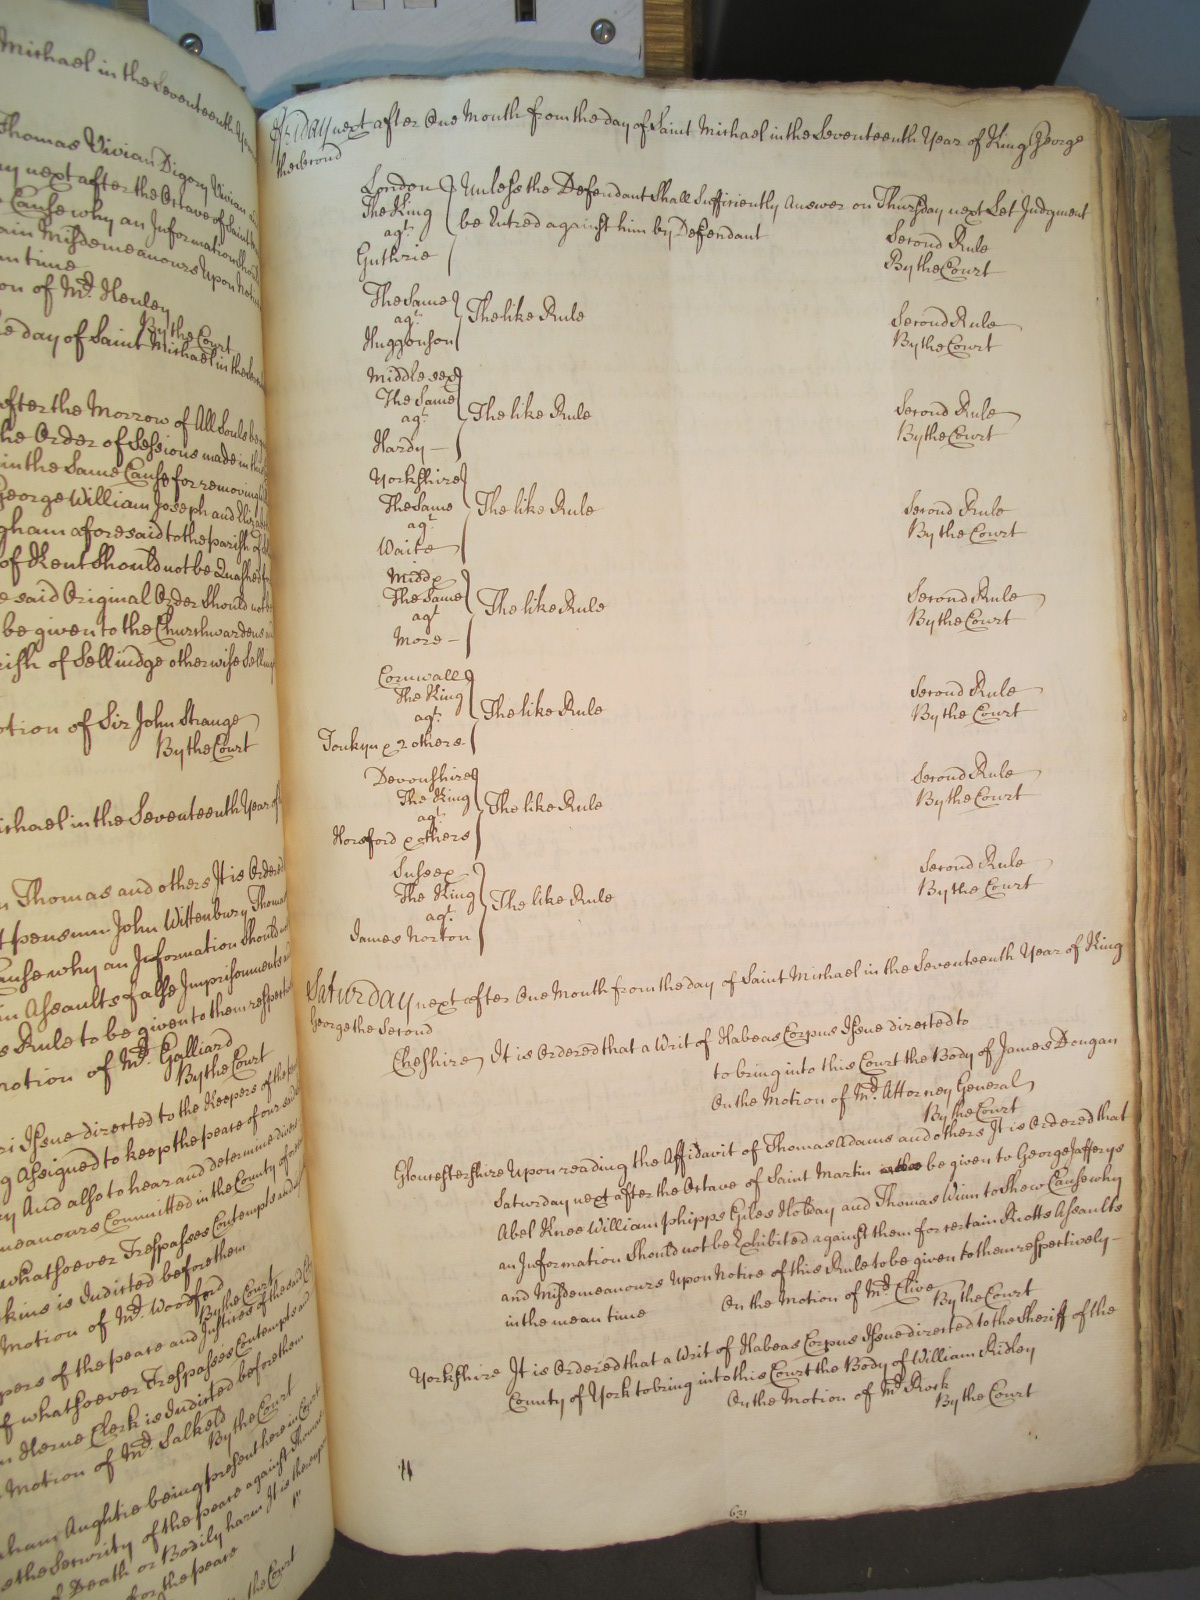 Michael in the Seventeenth Year
Thomas Vivian Digory Vivian
next after the Octave of Saint
Cause why an Information should
Misdemeanours Upon Notice
time
on of Mr. Henley
By the Court
day of Saint Michael in the
after the Morrow of All Souls
the Order of Sessions made in
in the Same Cause for removing
George William Joseph and Elizabeth
aforesaid to the parish of
of Kent Should not be Quashed
said Original Order Should not
be given to the Churchwardens
of Sellindge otherwise
otion of Sir John Strange
By the Court
ichael in the Seventeenth Year of
Thomas and others It is Ordered
John Wittenbury Thomas
Cause why an Information Should not
Assaults false Imprisonments
Rule to be given to them respectively
otion of Mr. Galliard
By the Court
Issue directed to the Keepers of the
Assigned to keep the peace of our said
And also to hear and determine divers
Committed in the County of
whatsoever Trespasses Contempts and
kins is Indicted before them
Motion of Mr. Woodford
By the Court
of the peace and Justices of the said
of whatsoever Trespasses Contempts and
Herne Clerk is Indicted before them
Motion of Mr. Salkeld
By the Court
being present here in Court
the Security of the peace against Thomas
of Death or Bodily harm It is thereupon
for the peace
the Court
Friday next after One Month from the day of Saint Michael in the Seventeenth Year of King George
the Second
London } Unless the Defendant Shall Sufficiently Answer on Thursday next Let Judgment
The King be Entred against him by Defendant
agt. Second Rule
Guthrie By the Court
The Same
agt. } The like Rule Second Rule
Huggonson By the Court
Middlesex
The Same
agt. } The like Rule Second Rule
Hardy — By the Court
Yorkshire
The Same } The like Rule Second Rule
agt. By the Court
Waite
Middx
The Same } The like Rule Second Rule
agt By the Court
More —
Cornwall
The King Second Rule
agt. } The like Rule By the Court
Tonkyn & 2 others
Devonshire Second Rule
The King } The like Rule By the Court
agt.
Horsford & others
Sussex Second Rule
The King } The like Rule By the Court
agt.
James Norton
Saturday next after One Month from the day of Saint Michael in the Seventeenth Year of King
George the Second
Cheshire It is Ordered that a Writ of Habeas Corpus Issue directed to
to bring into this Court the Body of James Dongan
On the Motion of Mr. Attorney General
By the Court
Gloucestershire Upon reading the Affidavit of Thomas Adams and others It is Ordered that
Saturday next after the Octave of Saint Martin be given to George Jafferys
Abel Knee William phipps Giles Holiday and Thomas Winn to Shew Cause why
an Information Should not be Exhibited against them for certain Riotts Assaults
and Misdemeanours Upon Notice of this Rule to be given to them respectively —
in the mean time On the Motion of Mr. Clive
By the Court
Yorkshire It is Ordered that a Writ of Habeas Corpus Issue directed to the Sheriff of the
County of York to bring into this Court the Body of William Ridley
On the Motion of Mr. Rook
By the Court
631